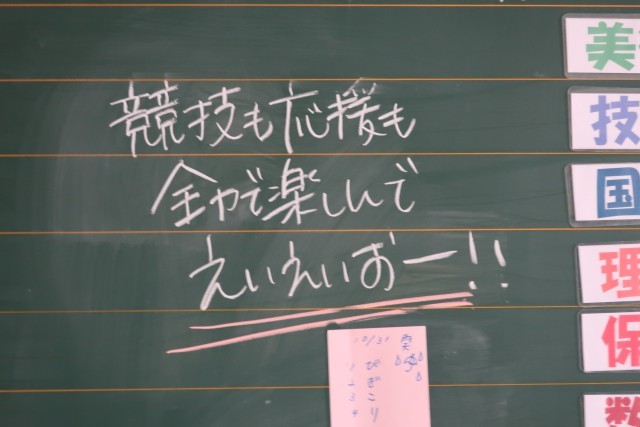 競技も応援も
全力で楽しんで
えいえいおー!!
10/31
1 び
2 ぎ
3 こ
4 り
美
技
国
理
保
数